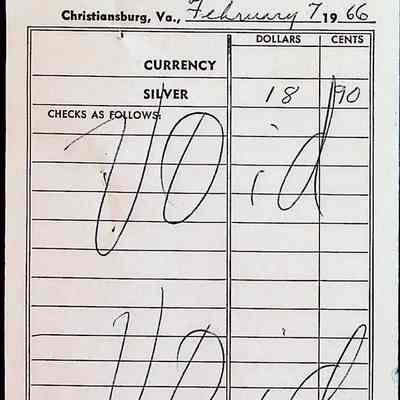 Christiansburg, Va., February 7 1966
DOLLARS CENTS
CURRENCY
SILVER 18 90
CHECKS AS FOLLOWS:
Void
Void